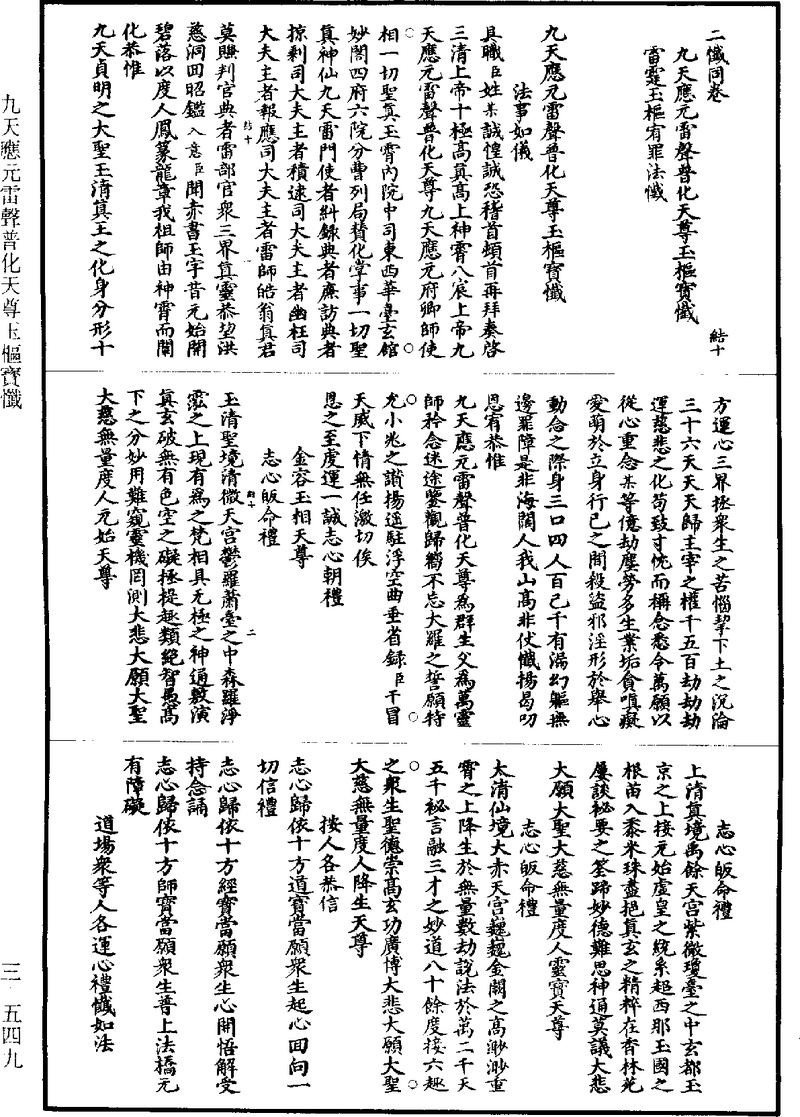 二懺同卷
九天應元雷聲普化天尊玉樞寶懺
雷霆玉樞宥罪法懺
結十
九天應元雷聲普化天尊玉樞寶懺
法事如儀
具職臣姓某誠惶誠恐稽首頓首再拜奏啓
三清上帝十極高真高上神霄八宸上帝九
天應元雷聲普化天尊九天應元府卿師使
相一切聖真玉霄內院中司東西華臺玄館
妙閣四府六院分曹列局贊化掌事一切聖
真神仙九天雷門使者糾錄典者廉訪典者
掠剩司大夫主者積逮司大夫主者幽枉司
大夫主者報應司大夫主者雷師皓翁真君
莫賺判官典者雷部官衆三界真靈恭望洪
慈洞回昭鑑入意臣聞赤書玉字昔元始開
碧落以度人鳳篆龍章我祖師由神霄而闡
化恭惟
九天貞明之大聖玉清真王之化身分形十
結十
一
方運心三界拯衆生之苦惱挈下土之沉淪
三十六天天天歸主宰之權千五百劫劫劫
運慈悲之化苟致寸忱而稱念悉令萬願以
從心重念某等億劫塵勞多生業垢貪嗔癡
愛萌於立身行己之間殺盜邪淫形於舉心
動念之際身三口四人百己千有漏幻軀無
邊罪障是非海闊人我山高非仗懺揚曷叨
恩宥恭惟
九天應元雷聲普化天尊爲群生父爲萬靈
師矜念迷途鑒觀歸嚮不忘大羅之誓願特
允小兆之讚揚遥駐浮空曲垂省録臣干冒
天威下情無任激切俟
恩之至虔運一誠志心朝禮
金容玉相天尊
志心皈命禮
玉清聖境清微天宫鬱羅蕭臺之中森羅淨
泓之上現有爲之梵相具无極之神通敷演
真玄破無有色空之礙拯提趣類絕智愚高
下之分妙用難窺靈機罔測大悲大願大聖
大慈無量度人元始天尊
結十
二
志心皈命禮
上清真境禹餘天宫紫微瓊臺之中玄都玉
京之上接元始虛皇之統系超西那玉國之
根苗入黍米珠盡挹真玄之精粹在香林苑
屢談秘要之筌蹄妙德難思神通莫議大悲
大願大聖大慈無量度人靈寶天尊
志心皈命禮
太清仙境大赤天宫巍巍金闕之高渺渺重
霄之上降生於無量數劫說法於萬二千天
五千秘言融三才之妙道八十餘度接六趣
之衆生聖德崇高玄功廣博大悲大願大聖
大慈無量度人降生天尊
按人各恭信
志心歸依十方道寶當願衆生起心回向一
切信禮
志心歸依十方經寶當願衆生心開悟解受
持念誦
志心歸依十方師寶當願衆生普上法橋无
有障礙
道場衆等人各運心禮懺如法
九天應元雷聲普化天尊玉樞寶懺
三·五四九